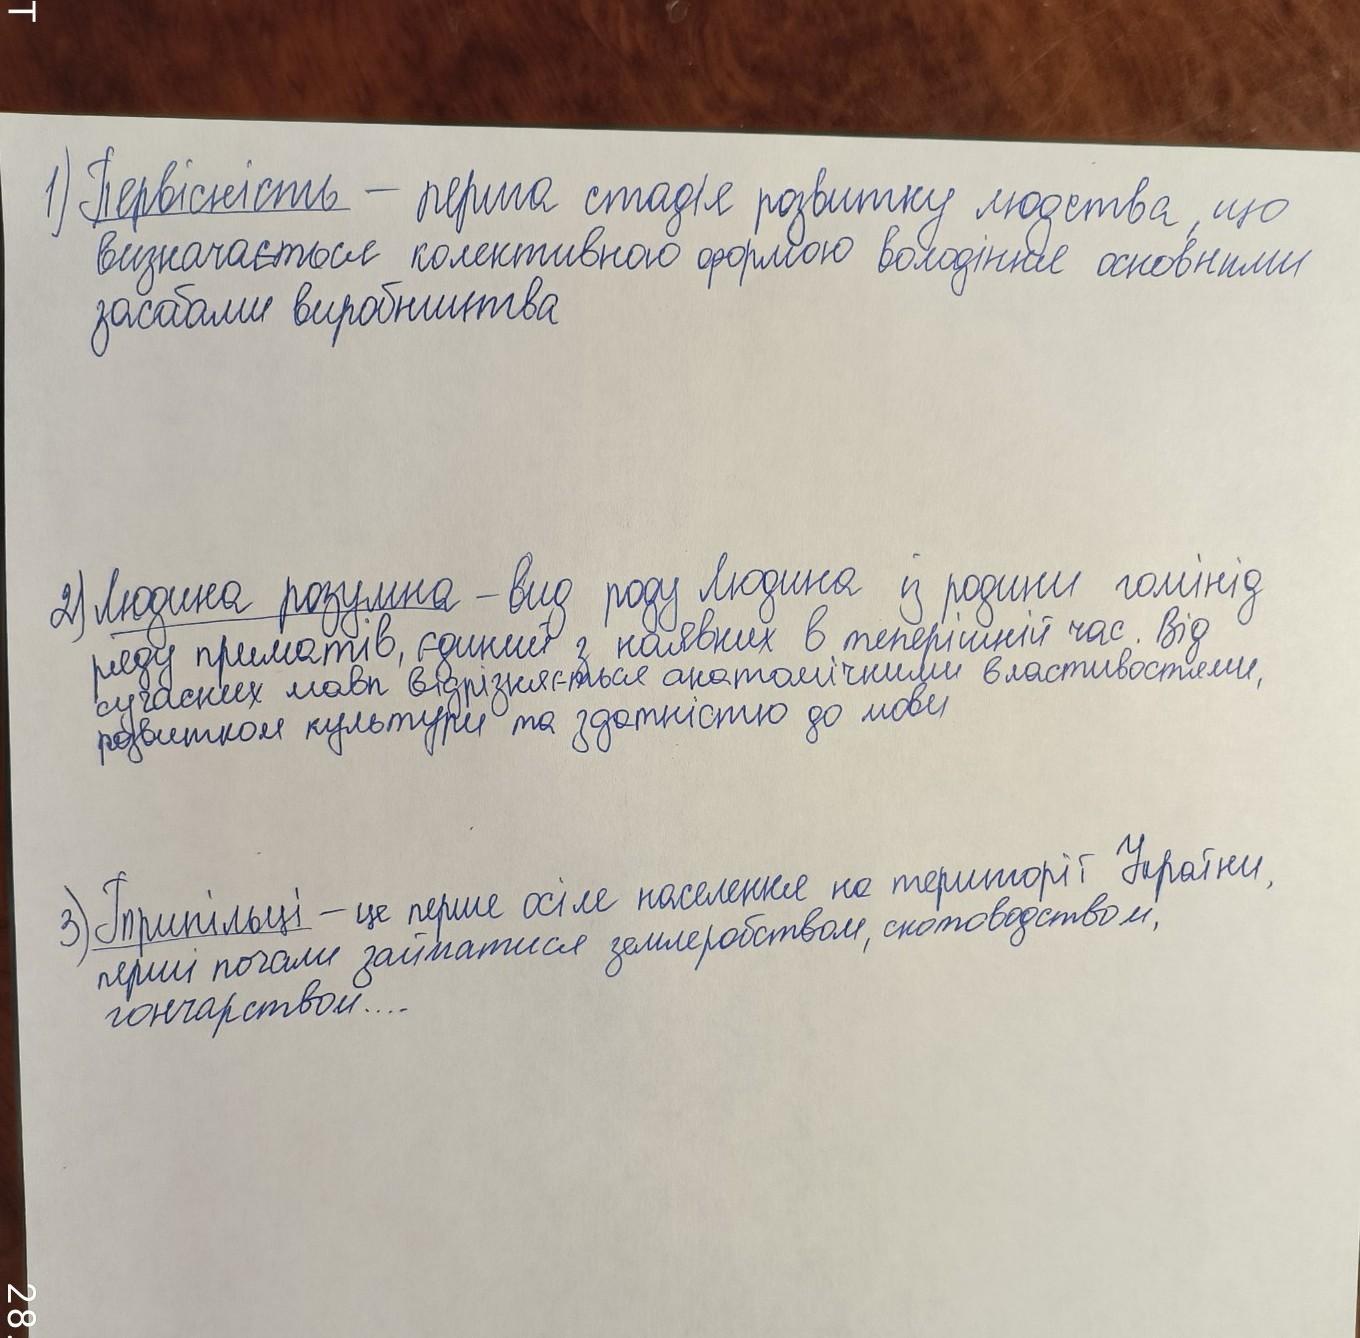 1) Первісність – перша стадія розвитку людства, що
визначається колективною формою володіння основними
засобами виробництва
2) Людина розумна – вид роду Людина із родини гомінід
ряду приматів, єдиний з наявних в теперішній час. Від
сучасних мавп відрізняється анатомічними властивостями,
розвитком культури та здатністю до мови
3) Трипільці – це перше осіле населення на території України,
перші почали займатися землеробством, скотоводством,
гончарством....
T
28.